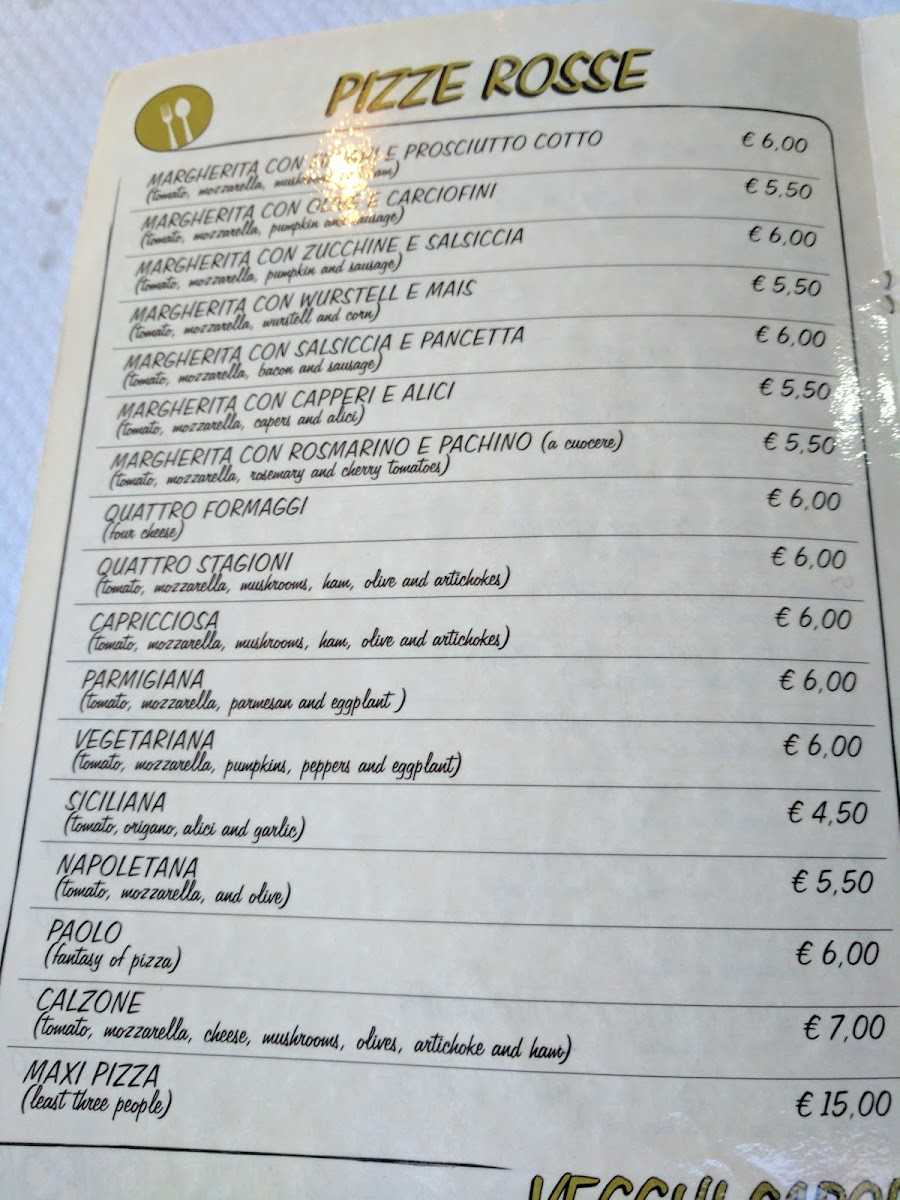 PIZZE ROSSE
MARGHERITA CON FUNGHI E PROSCIUTTO COTTO € 6,00
(tomato, mozzarella, mushrooms, ham)
MARGHERITA CON OLIVE E CARCIOFINI € 5,50
(tomato, mozzarella, pumpkin and sausage)
MARGHERITA CON ZUCCHINE E SALSICCIA € 6,00
(tomato, mozzarella, pumpkin and sausage)
MARGHERITA CON WURSTELL E MAIS € 5,50
(tomato, mozzarella, wurstell and corn)
MARGHERITA CON SALSICCIA E PANCETTA € 6,00
(tomato, mozzarella, bacon and sausage)
MARGHERITA CON CAPPERI E ALICI € 5,50
(tomato, mozzarella, capers and alici)
MARGHERITA CON ROSMARINO E PACHINO (a cuocere) € 5,50
(tomato, mozzarella, rosemary and cherry tomatoes)
QUATTRO FORMAGGI € 6,00
(four cheese)
QUATTRO STAGIONI € 6,00
(tomato, mozzarella, mushrooms, ham, olive and artichokes)
CAPRICCIOSA € 6,00
(tomato, mozzarella, mushrooms, ham, olive and artichokes)
PARMIGIANA € 6,00
(tomato, mozzarella, parmesan and eggplant )
VEGETARIANA € 6,00
(tomato, mozzarella, pumpkins, peppers and eggplant)
SICILIANA € 4,50
(tomato, origano, alici and garlic)
NAPOLETANA € 5,50
(tomato, mozzarella, and olive)
PAOLO € 6,00
(fantasy of pizza)
CALZONE € 7,00
(tomato, mozzarella, cheese, mushrooms, olives, artichoke and ham)
MAXI PIZZA € 15,00
(least three people)